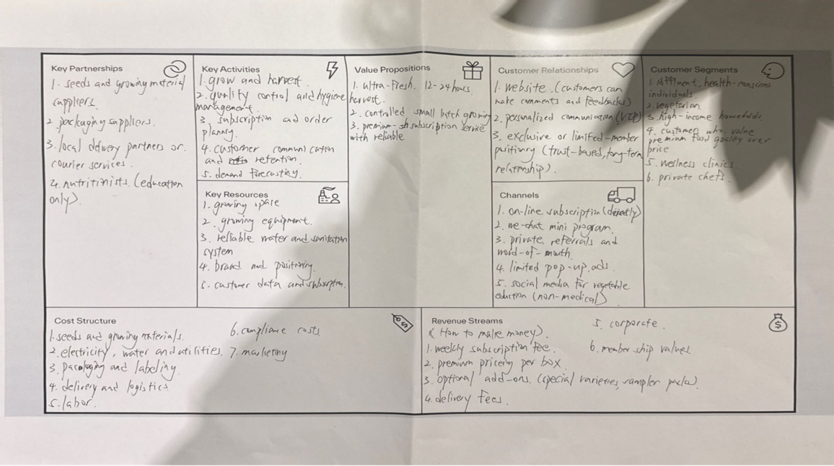 Key Partnerships
1. seeds and growing material
suppliers.
2. packaging suppliers.
3. local delivery partners or
courier services.
4. nutritinists (education
only).
Key Activities
1. grow and harvest.
2. quality control and hygiene
management.
3. subscription and order
planning.
4. customer communication
and retention.
5. demand forecasting.
Key Resources
1. growing space
2. growing equipment.
3. reliable water and sanitation
system
4. brand and positioning.
5. customer data and subscription.
Value Propositions
1. ultra-fresh. 12-24 hours
harvest.
2. controlled small batch growing
3. premium subscription service
with reliable
Customer Relationships
1. website. (customers can
make comments and feedbacks)
2. personalized communication (VIP)
3. exclusive or limited-member
positioning (trust-based, long-term
relationship).
Channels
1. on-line subscription (directly)
2. we-chat mini program.
3. private referrals and
word-of-mouth
4. limited pop-up ads
5. social media for vegetable
eduction (non-medical)
Customer Segments
1. health-conscious
individuals
2. vegetarian
3. high-income households
4. customer who value
premium food quality over
price
5. wellness clinics
6. private chefs
Cost Structure
1. seeds and growing materials.
2. electricity, water and utilities.
3. packaging and labeling.
4. delivery and logistics
5. labor.
6. compliance costs
7. marketing
Revenue Streams
(How to make money).
1. weekly subscription fee.
2. premium pricing per box.
3. optional add-ons. (special varieties, sampler packs)
4. delivery fees.
5. corporate.
6. member ship values